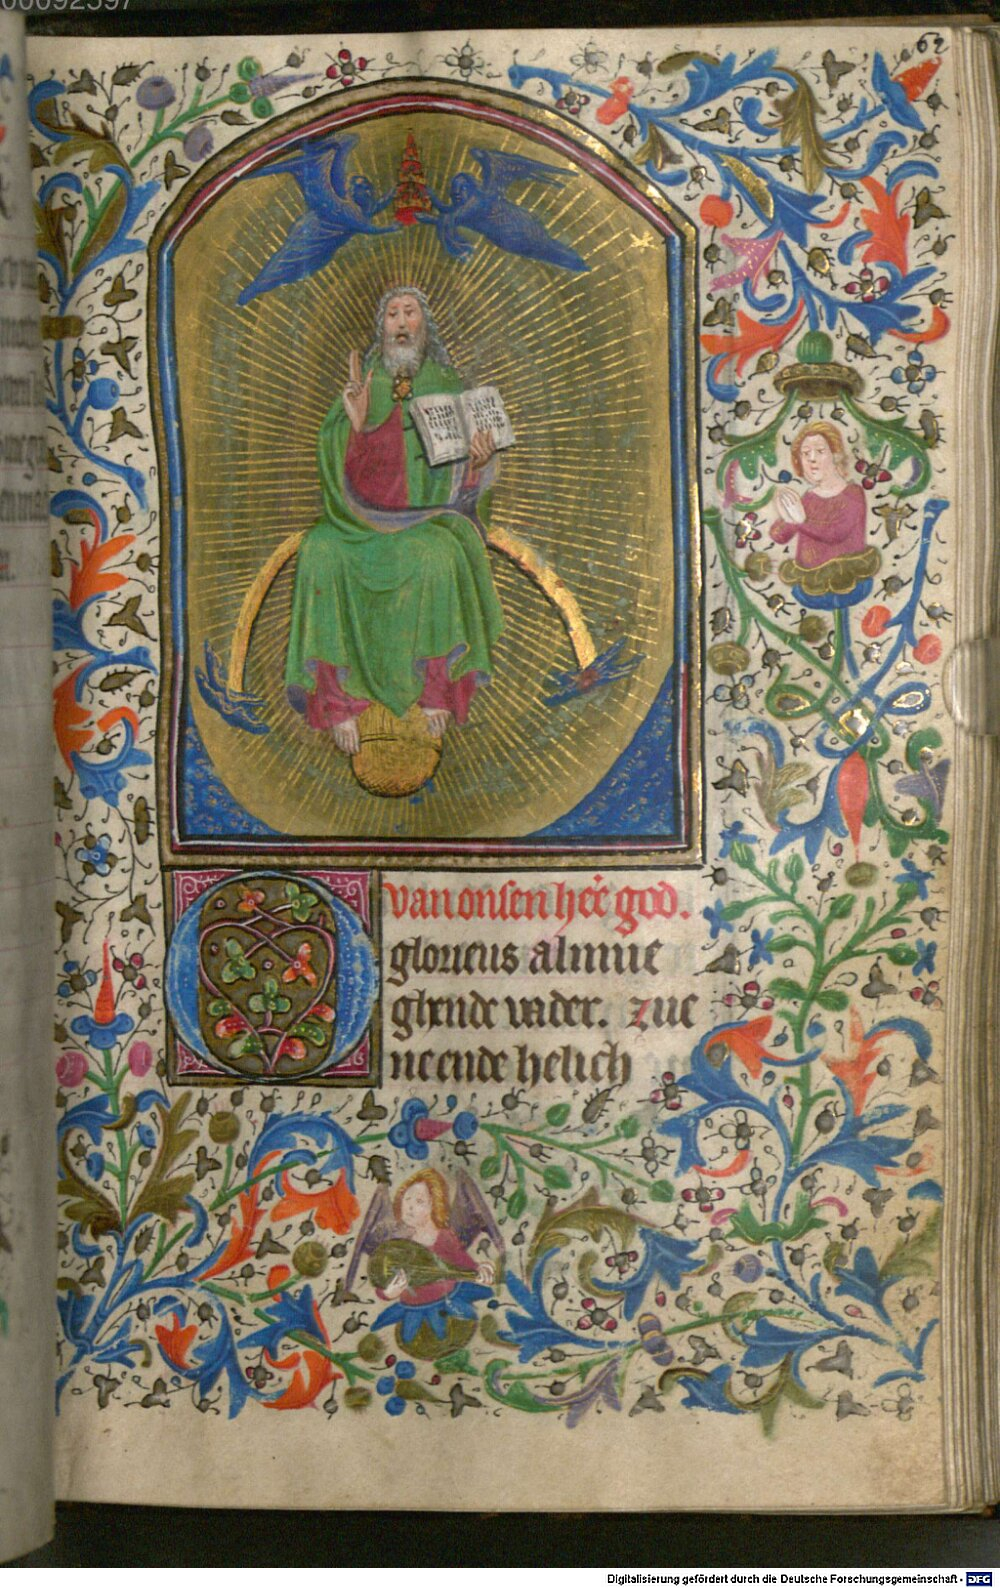 62
van onsen hēr god.
O glorieus almue
ghende vader. zue
ne ende helich
Digitalisierung gefördert durch die Deutsche Forschungsgemeinschaft - DFG